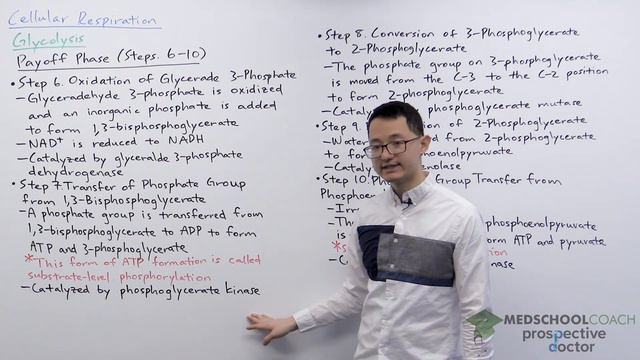 Cellular Respiration
Glycolysis
Payoff Phase (Steps 6-10)
• Step 6. Oxidation of Glycerade 3-Phosphate
- Glyceradehyde 3-phosphate is oxidized
and an inorganic phosphate is added
to form 1,3-bisphosphoglycerate
- NAD+ is reduced to NADH
- Catalyzed by glyceralde 3-phosphate
dehydrogenase
• Step 7. Transfer of Phosphate Group
from 1,3-Bisphosphoglycerate
- A phosphate group is transferred from
1,3-bisphosphoglycerate to ADP to form
ATP and 3-phosphoglycerate
*This form of ATP formation is called
substrate-level phosphorylation
- Catalyzed by phosphoglycerate kinase
• Step 8. Conversion of 3-Phosphoglycerate
to 2-Phosphoglycerate
- The phosphate group on 3-phosphoglycerate
is moved from the C-3 to the C-2 position
to form 2-phosphoglycerate
- phosphoglycerate mutase
• Step 9. of 2-Phosphoglycerate
- Water from 2-phosphoglycerate
to
• Step 10. Group Transfer from
phosphoenolpyruvate
is ATP and pyruvate
MEDSCHOOLCOACH
prospective
doctor